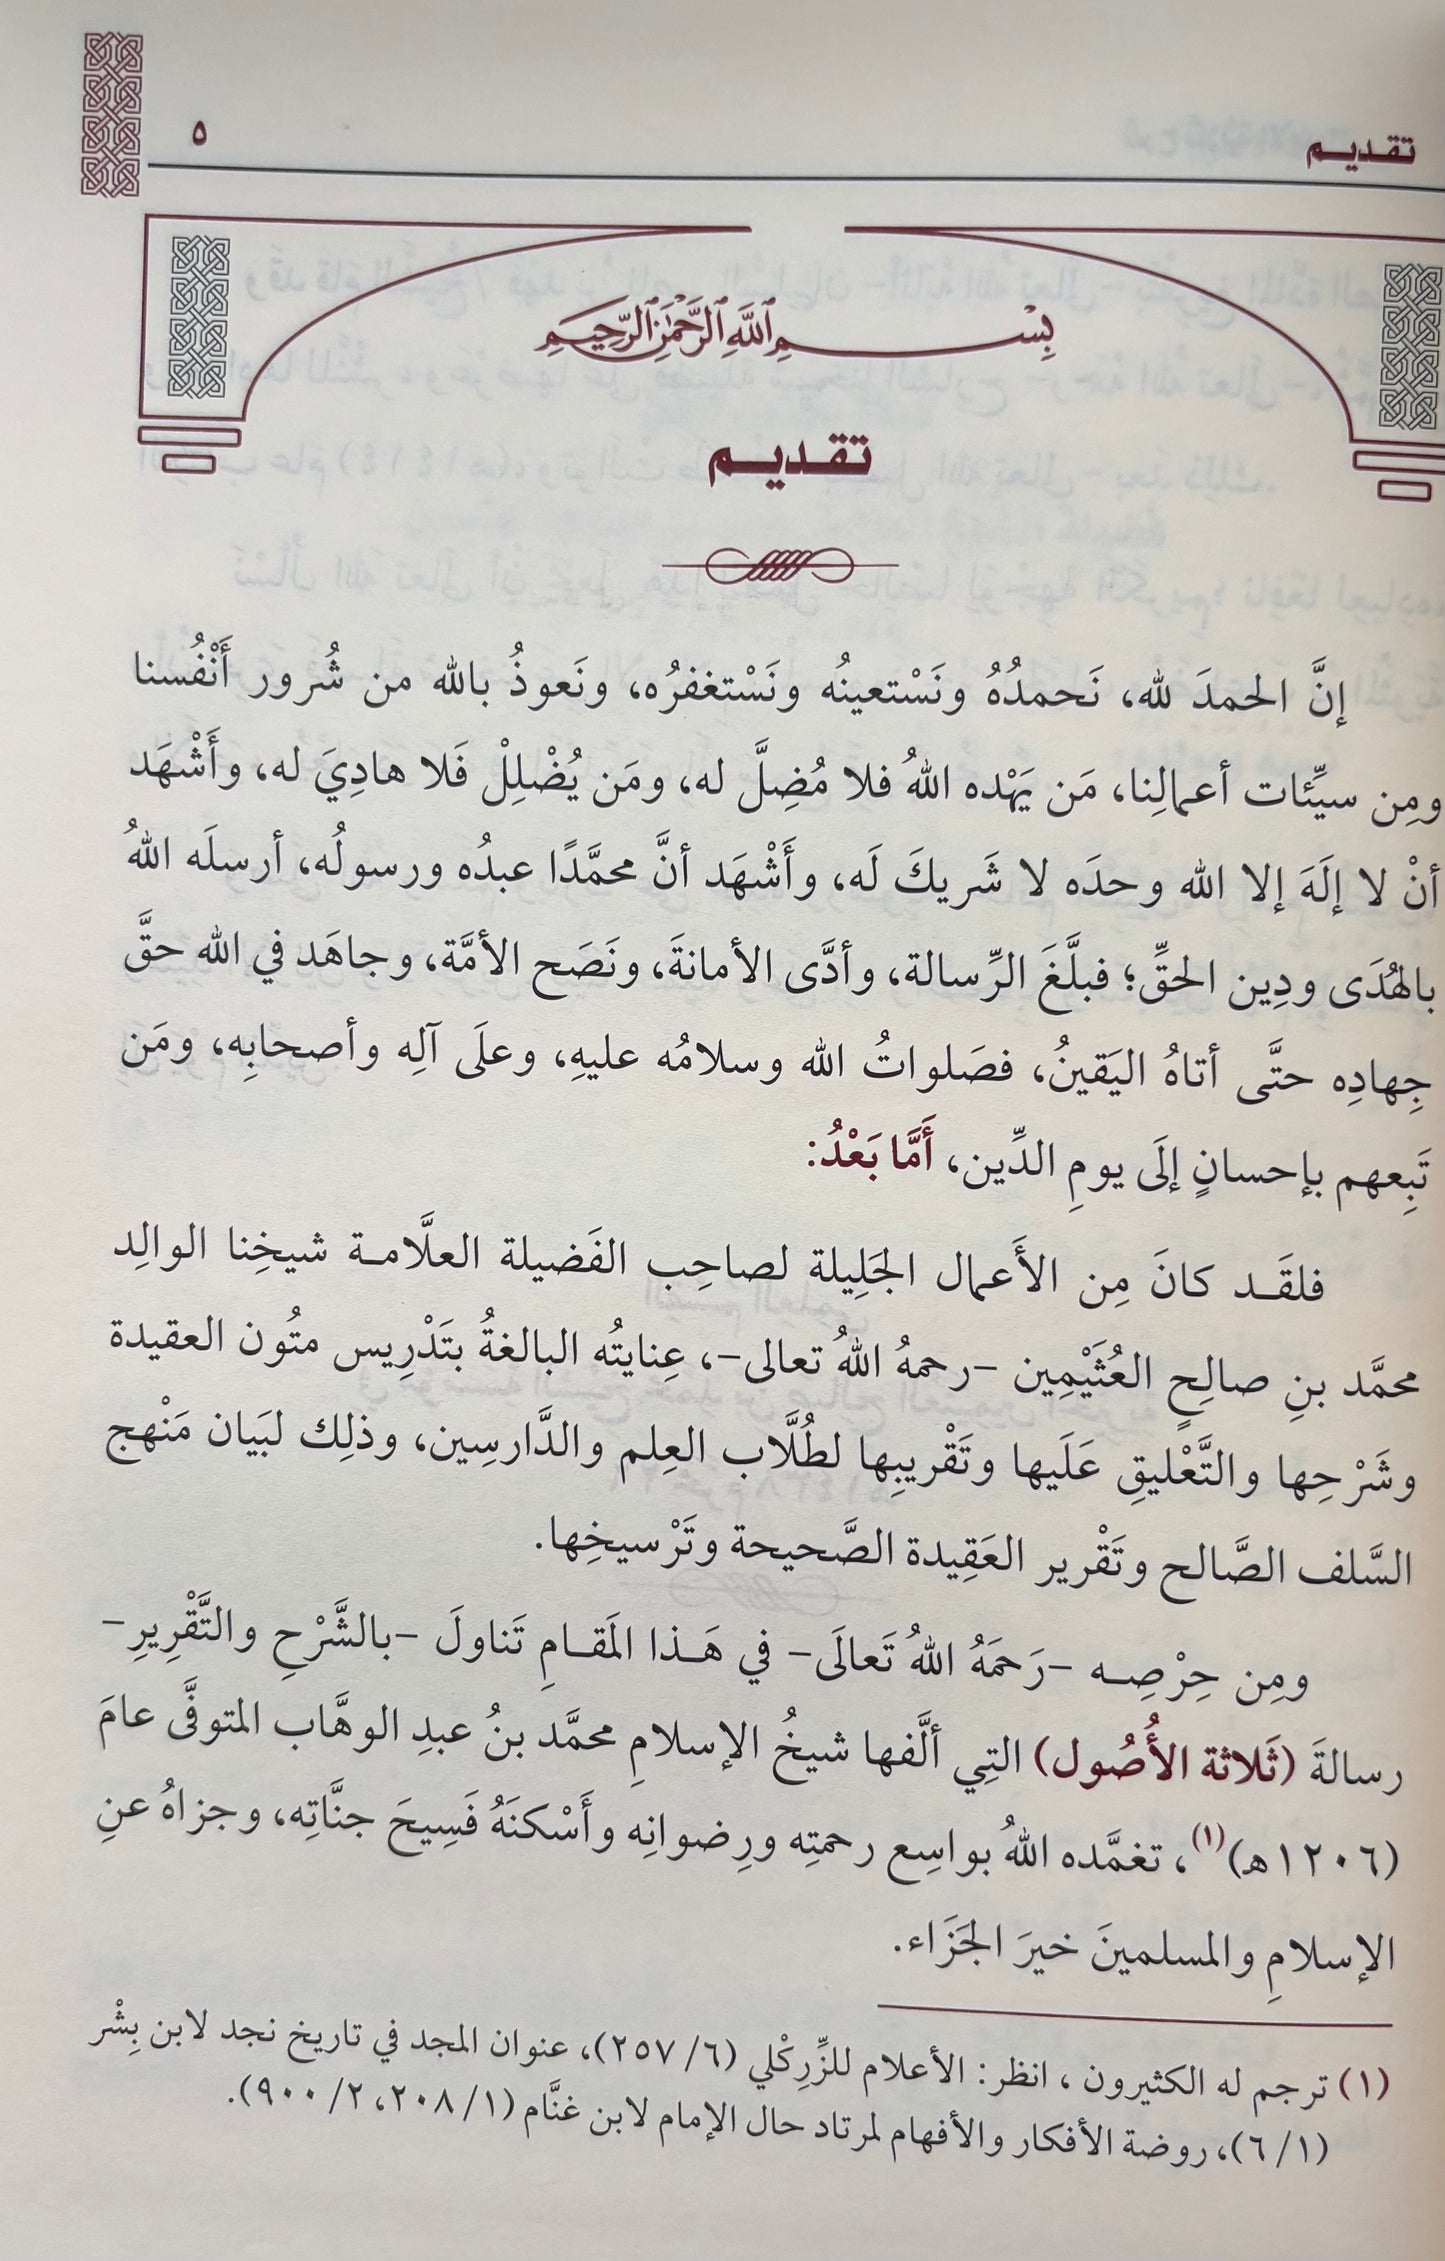 تقديم
٥
بِسْمِ اللَّهِ الرَّحْمَٰنِ الرَّحِيمِ
تقديم
إنَّ الحمدَ لله، نَحمدُهُ ونَسْتعينُه ونَسْتغفرُه، ونَعوذُ بالله من شُرور أَنْفُسنا
ومِن سيِّئات أعمالِنا، مَن يَهْده اللهُ فلا مُضِلَّ له، ومَن يُضْلِلْ فَلا هادِيَ له، وأَشْهَد
أنْ لا إلَهَ إلا الله وحدَه لا شَريكَ لَه، وأَشْهَد أنَّ محمَّدًا عبدُه ورسولُه، أرسلَه اللهُ
بالهُدَى ودِين الحقِّ؛ فبلَّغَ الرِّسالة، وأدَّى الأمانةَ، ونَصَح الأمَّة، وجاهَد في الله حقَّ
جِهادِه حتَّى أتاهُ اليَقينُ، فصَلواتُ الله وسلامُه عليهِ، وعلَى آلِه وأصحابِه، ومَن
تَبِعهم بإحسانٍ إلَى يومِ الدِّين، أَمَّا بَعْدُ:
فلقَد كانَ مِن الأَعمال الجَلِيلة لصاحِب الفَضيلة العلَّامة شيخِنا الوالِد
محمَّد بنِ صالِحٍ العُثَيْمِين -رحمهُ اللهُ تعالى-، عِنايتُه البالغةُ بتَدْرِيس متُون العقيدة
وشَرْحِها والتَّعْليقِ عَلَيها وتَقْريبِها لطُلَّاب العِلم والدَّارسِين، وذلِك لبَيان مَنْهج
السَّلف الصَّالح وتَقْرير العَقِيدة الصَّحيحة وتَرْسيخِها.
ومِن حِرْصِه -رَحمَهُ اللهُ تَعالَى- في هَذا المَقامِ تَناولَ -بالشَّرْحِ والتَّقْرِيرِ-
رسالةَ (ثَلاثة الأُصُول) التِي ألَّفها شيخُ الإسلامِ محمَّد بنُ عبدِ الوهَّاب المتوفَّى عامَ
(١٢٠٦هـ)(١)، تغمَّده اللهُ بواسِع رحمتِه ورِضوانِه وأَسْكنَهُ فَسِيحَ جنَّاتِه، وجزاهُ عنِ
الإسلامِ والمسلمينَ خيرَ الجَزَاء.
(١) ترجم له الكثيرون ، انظر: الأعلام للزِّرِكْلي (٦/ ٢٥٧)، عنوان المجد في تاريخ نجد لابن بِشْر
(١/ ٦)، روضة الأفكار والأفهام لمرتاد حال الإمام لابن غنَّام (١/ ٢٠٨، ٢/ ٩٠٠).